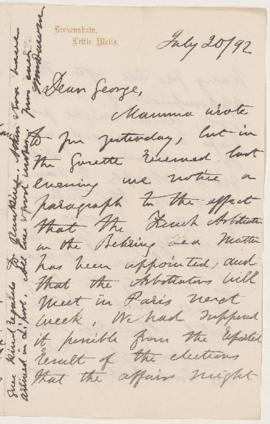 Birkenshaw,
Little Metis.
July 20/92
Dear George,
Mamma wrote
to you yesterday, but in
the Gazette received last
evening we notice a
paragraph to the effect
that the French Arbitrator
in the Behring sea Matter
has been appointed, and
that the Arbitrators will
meet in Paris next
week. We had supposed
it possible from the
result of the elections
that the affairs might
Give kind regards to
arrived in L'pool. All